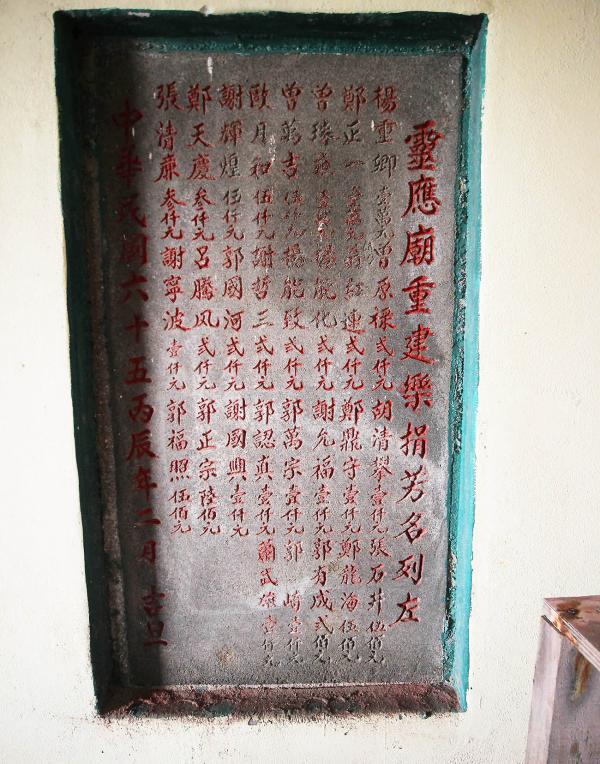 靈應廟重建樂捐芳名列左
楊重卿壹萬元曾原祿貳仟元胡清攀壹仟元張石井伍佰元
鄭正一 紅連貳仟元鄭鼎守壹仟元鄭龍海伍佰元
曾 能化貳仟元謝允福壹仟元郭有成貳佰元
曾萬吉伍仟元楊能致貳仟元郭萬宗壹仟元郭 壹仟元
歐月和伍仟元謝哲三貳仟元郭認真壹仟元蕭武雄壹仟元
謝輝煌伍仟元郭國河貳仟元謝國興壹仟元
鄭天慶叁仟元呂騰风貳仟元郭正宗陸佰元
張清廉叁仟元謝寧波壹仟元郭福照伍佰元
中華民國六十五丙辰年二月 吉旦